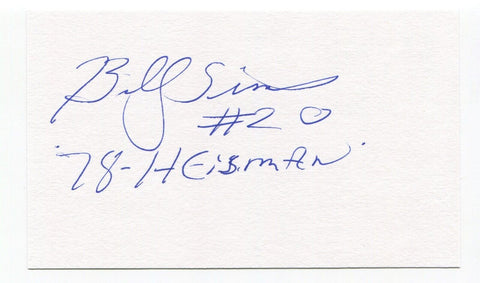 Billy Sims
#20
'78-HEisman